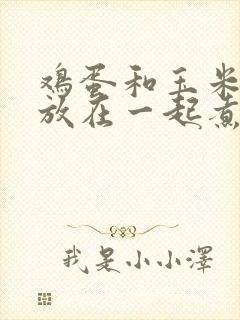 鸡蛋和玉米
放在一起煮
我是小小澤